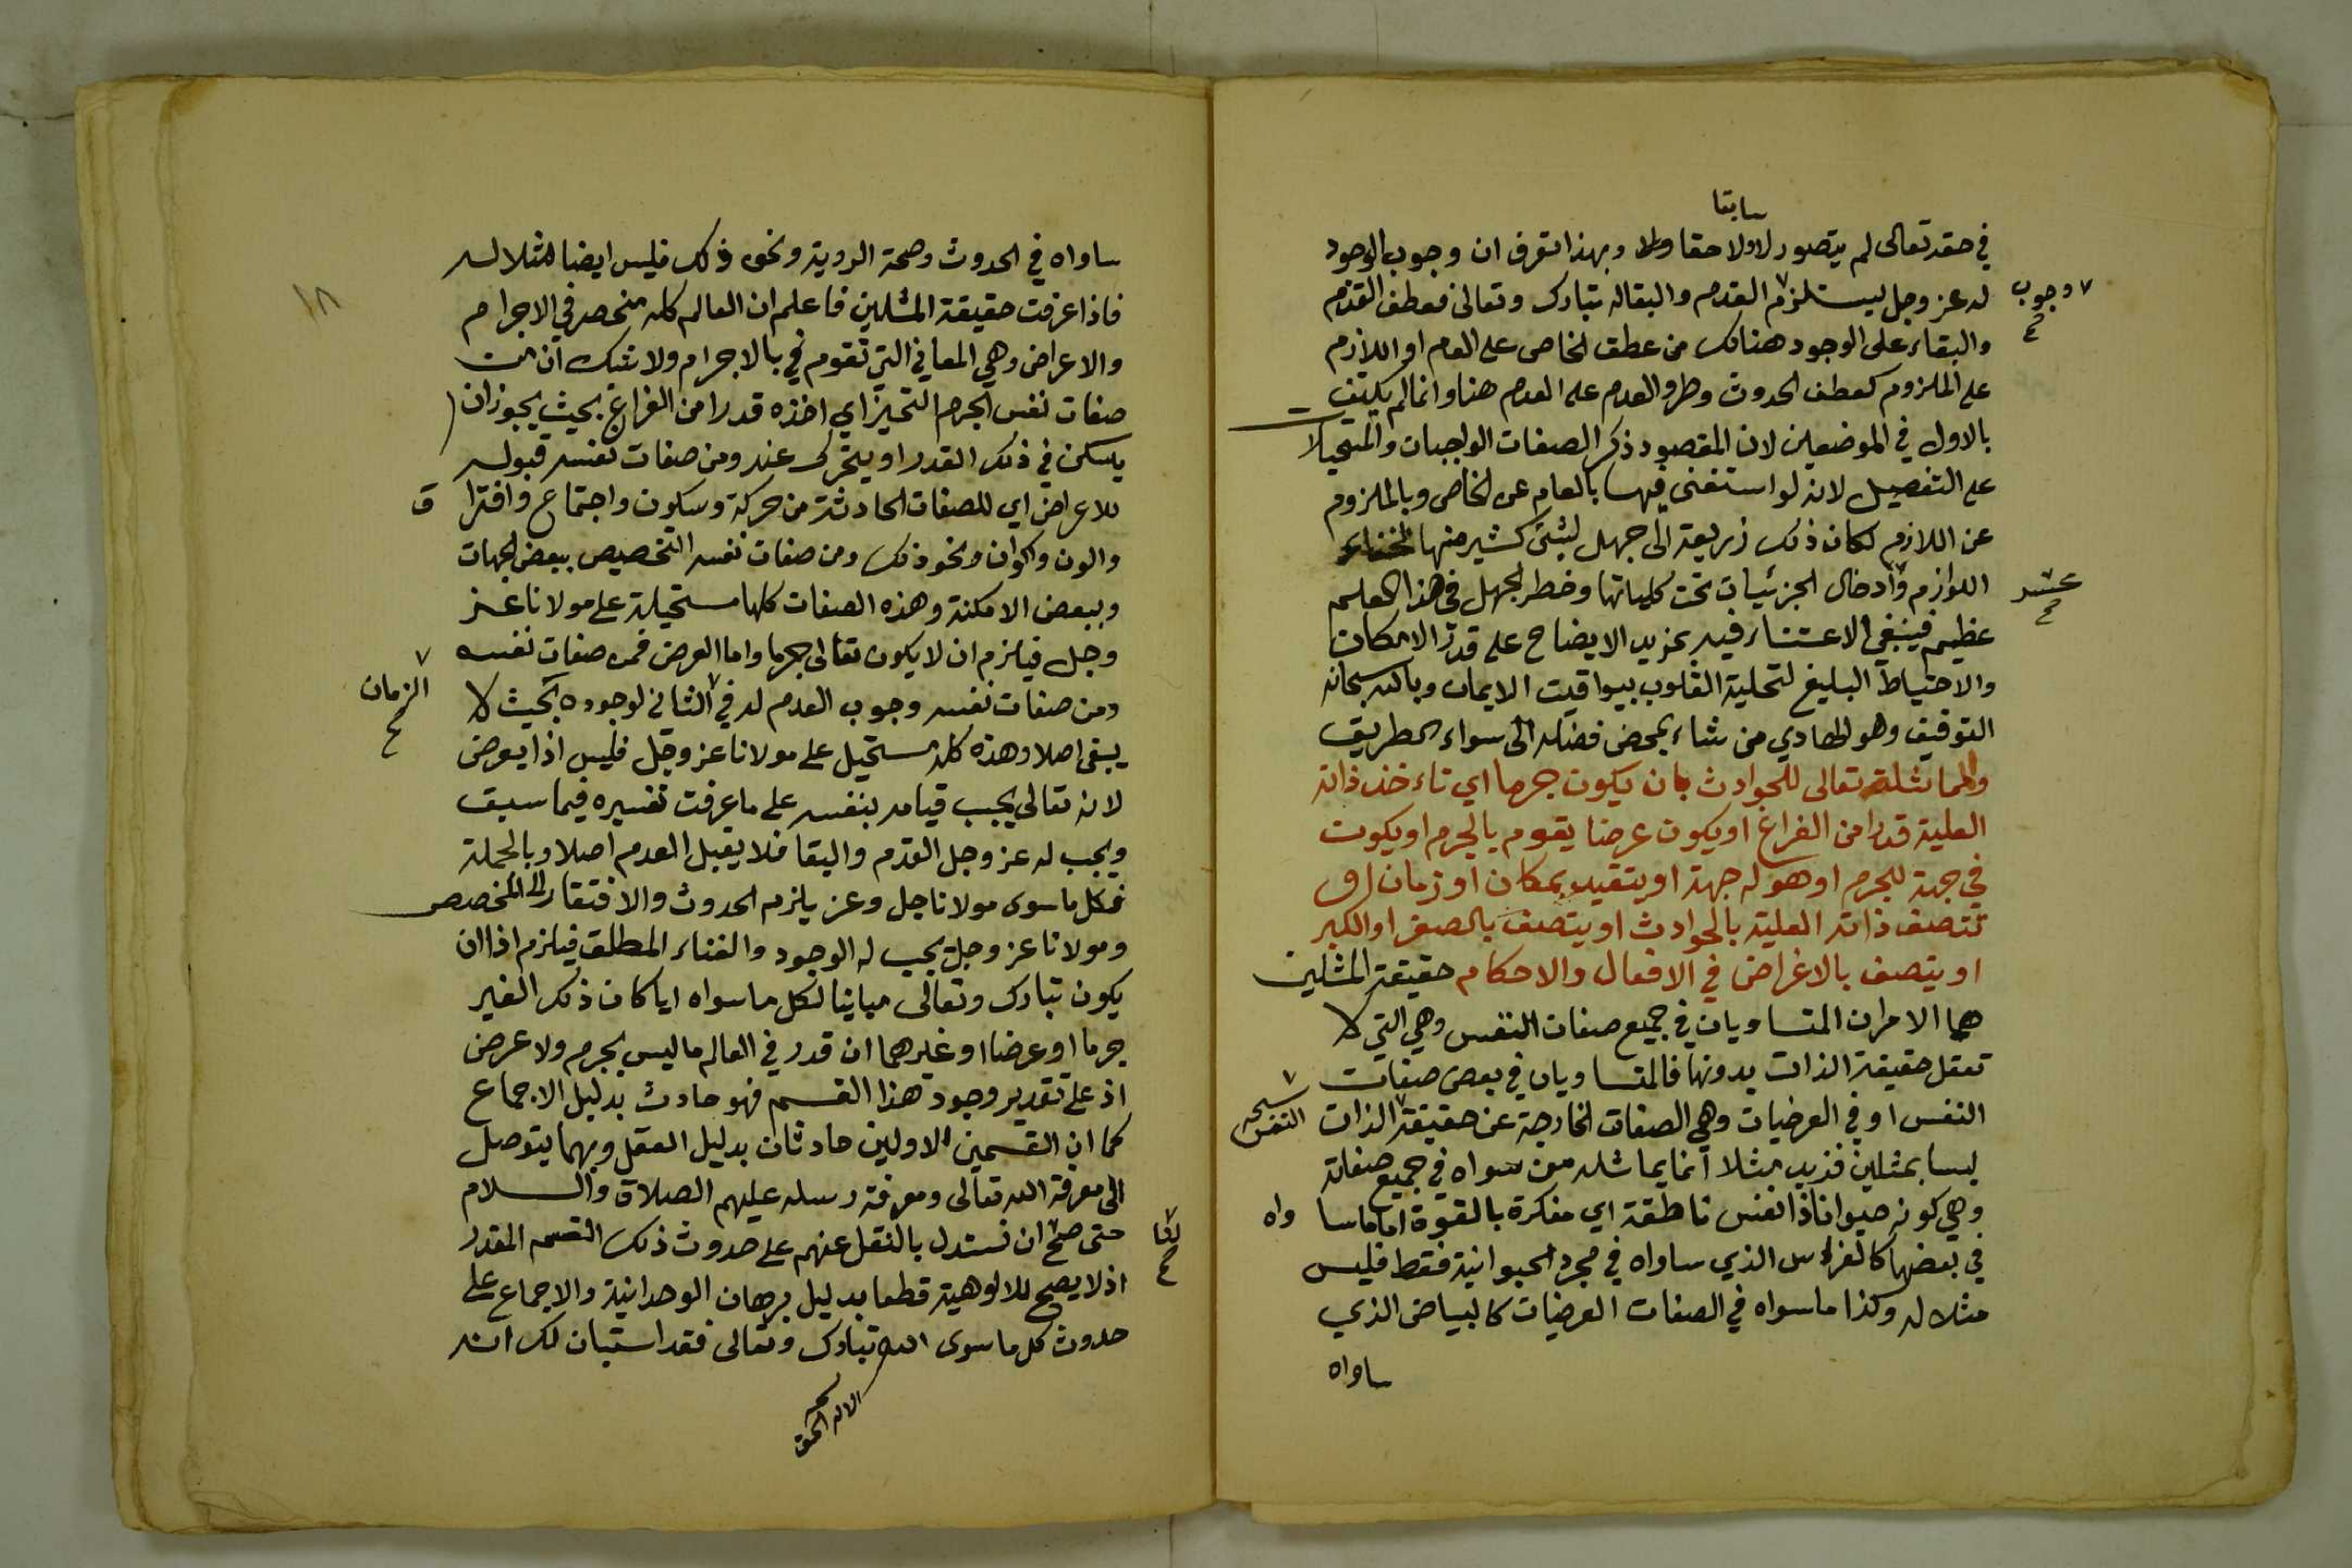 سابقا
في حقه تعالى لم يتصور لا ولاحقا ولا وبهذا تعرف ان وجوب الوجود
له عز وجل يستلزم القدم والبقا له تبارك وتعالى فعطف القدم
وجوب
والبقاء على الوجود هنالك من عطف الخاص على العام او اللازم
على الملزوم كعطف الحدوث وطرو العدم على العدم هنا وانما لم يكتف
بالاول في الموضعين لان المقصود ذكر الصفات الواجبات والمستحيلا
على التفصيل لانه لو استغنى فيها بالعام عن الخاص وبالملزوم
عن اللازم لكان ذلك زريعة الى جهل لشئ كثير منها لخفاء
اللوازم وادخال الجزئيات تحت كلياتها وخطر الجهل في هذا العلم
عسر
عظيم فينبغي الاعتناء فيه بمزيد الايضاح على قدر الامكان
والاحتياط البليغ لتحلية القلوب بيواقيت الايمان وبالله سبحانه
التوفيق وهو الهادي من شاء بمحض فضله الى سواء الطريق
والمماثلة تعالى للحوادث بان يكون جرما اي تاءخذ ذاته
العلية قدرا من الفراغ او يكون عرضا يقوم بالجرم او يكون
في جهة للجرم او هو له جهة او يتقيد بمكان او زمان او
تتصف ذاته العلية بالحوادث او يتصف بالصغر او الكبر
او يتصف بالاغراض في الافعال والاحكام حقيقة المثلين
هما الامران المتساويان في جميع صفات النفس وهي التي لا
تعقل حقيقة الذات بدونها فالمتساويان في بعض صفات
النفس او في العرضيات وهي الصفات الخارجة عن حقيقة الذات
النفس
ليسا بمثلين فزيد مثلا انما يماثله من سواه في جميع صفاته
وهي كونه حيوانا ذا نفس ناطقة اي مفكرة بالقوة اما ما سا واه
في بعضها كالفرس الذي ساواه في مجرد الحيوانية فقط فليس
مثلا له وكذا ما سواه في الصفات العرضيات كالبياض الذي
ساواه
١٨
ساواه في الحدوث وصحة الروية ونحو ذلك فليس ايضا مثلا له
فاذا عرفت حقيقة المثلين فاعلم ان العالم كله منحصر في الاجرام
والاعراض وهي المعاني التي تقوم في بالاجرام ولا شك ان من
صفات نفس الجرم التحيز اي اخذه قدرا من الفراغ بحيث يجوز ان
يسكن في ذلك القدر او يتحرك عنه ومن صفات نفسه قبوله
للاعراض اي للصفات الحادثة من حركة وسكون واجتماع وافترا ق
والون واكوان ونحو ذلك ومن صفات نفسه التخصيص ببعض الجهات
وببعض الامكنة وهذه الصفات كلها مستحيلة على مولانا عز
وجل فيلزم ان لا يكون تعالى جرما واما العرض فمن صفات نفسه
ومن صفات نفسه وجوب العدم له في الثاني لوجوده بحيث لا
الزمان
يبقى اصلا وهذه كله مستحيل على مولانا عز وجل فليس اذا بعرض
لانه تعالى يجب قيامه بنفسه على ما عرفت تفسيره فيما سبق
ويجب له عز وجل القدم والبقا فلا يقبل العدم اصلا وبالجملة
فكل ما سوى مولانا جل وعز يلزم الحدوث والافتقار الى المخصص
ومولانا عز وجل يجب له الوجود والغناء المطلق فيلزم اذا ان
يكون تبارك وتعالى مباينا لكل ما سواه ايا كان ذلك الغير
جرما او عرضا او غيرهما ان قدر في العالم ما ليس بجرم ولا عرض
اذ على تقدير وجود هذا القسم فهو حادث بدليل الاجماع
كما ان القسمين الاولين حادثان بدليل العقل وبهما يتوصل
الى معرفة الله تعالى ومعرفة رسله عليهم الصلاة والسلام
حتى صح ان نستدل بالنقل عنهم على حدوث ذلك القسم المقدر
لنا
اذ لا يصح للالوهية قطعا بدليل برهان الوحدانية والاجماع على
حدوث كل ما سوى الله تبارك وتعالى فقد استبان لك انه
الاله الحق